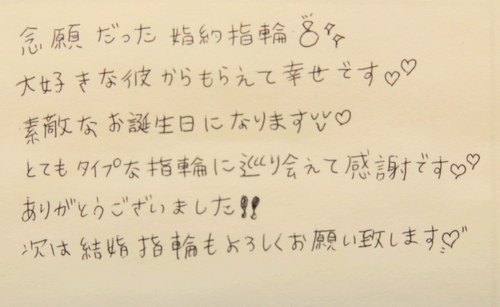 念願だった婚約指輪💍✨
大好きな彼からもらえて幸せです♡♡
素敵なお誕生日になります♡
とてもタイプな指輪に巡り会えて感謝です♡♡
ありがとうございました!!
次は結婚指輪もよろしくお願い致します♡